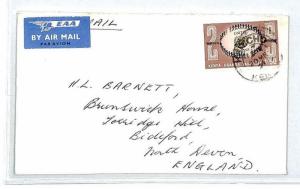 MAIL
EAA
BY AIR MAIL
PAR AVION
H.L. BARNETT,
Brunswick House,
Torridge Hill,
Bideford,
North Devon,
ENGLAND.